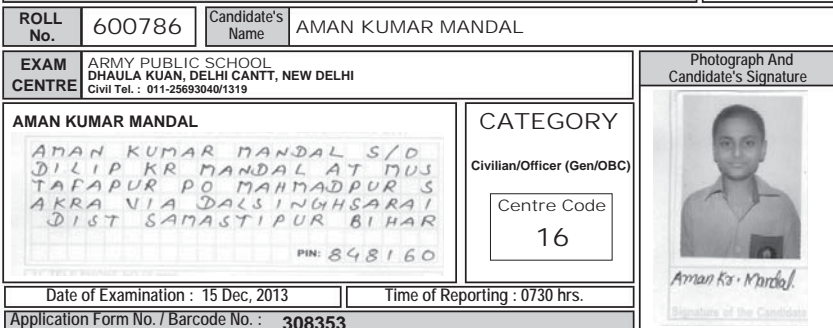 ROLL No. 600786 Candidate's Name AMAN KUMAR MANDAL
EXAM CENTRE
ARMY PUBLIC SCHOOL
DHAULA KUAN, DELHI CANTT, NEW DELHI
Civil Tel. : 011-25693040/1319
Photograph And
Candidate's Signature
AMAN KUMAR MANDAL
AMAN KUMAR MANDAL S/O
DILIP KR MANDAL AT MUS
TAFAPUR PO MAHMADPUR S
AKRA VIA DALSINGHSARAI
DIST SAMASTIPUR BIHAR
PIN: 848160
CATEGORY
Civilian/Officer (Gen/OBC)
Centre Code
16
Aman Kr. Mandal.
Signature of the Candidate
Date of Examination : 15 Dec, 2013
Time of Reporting : 0730 hrs.
Application Form No. / Barcode No. : 308353